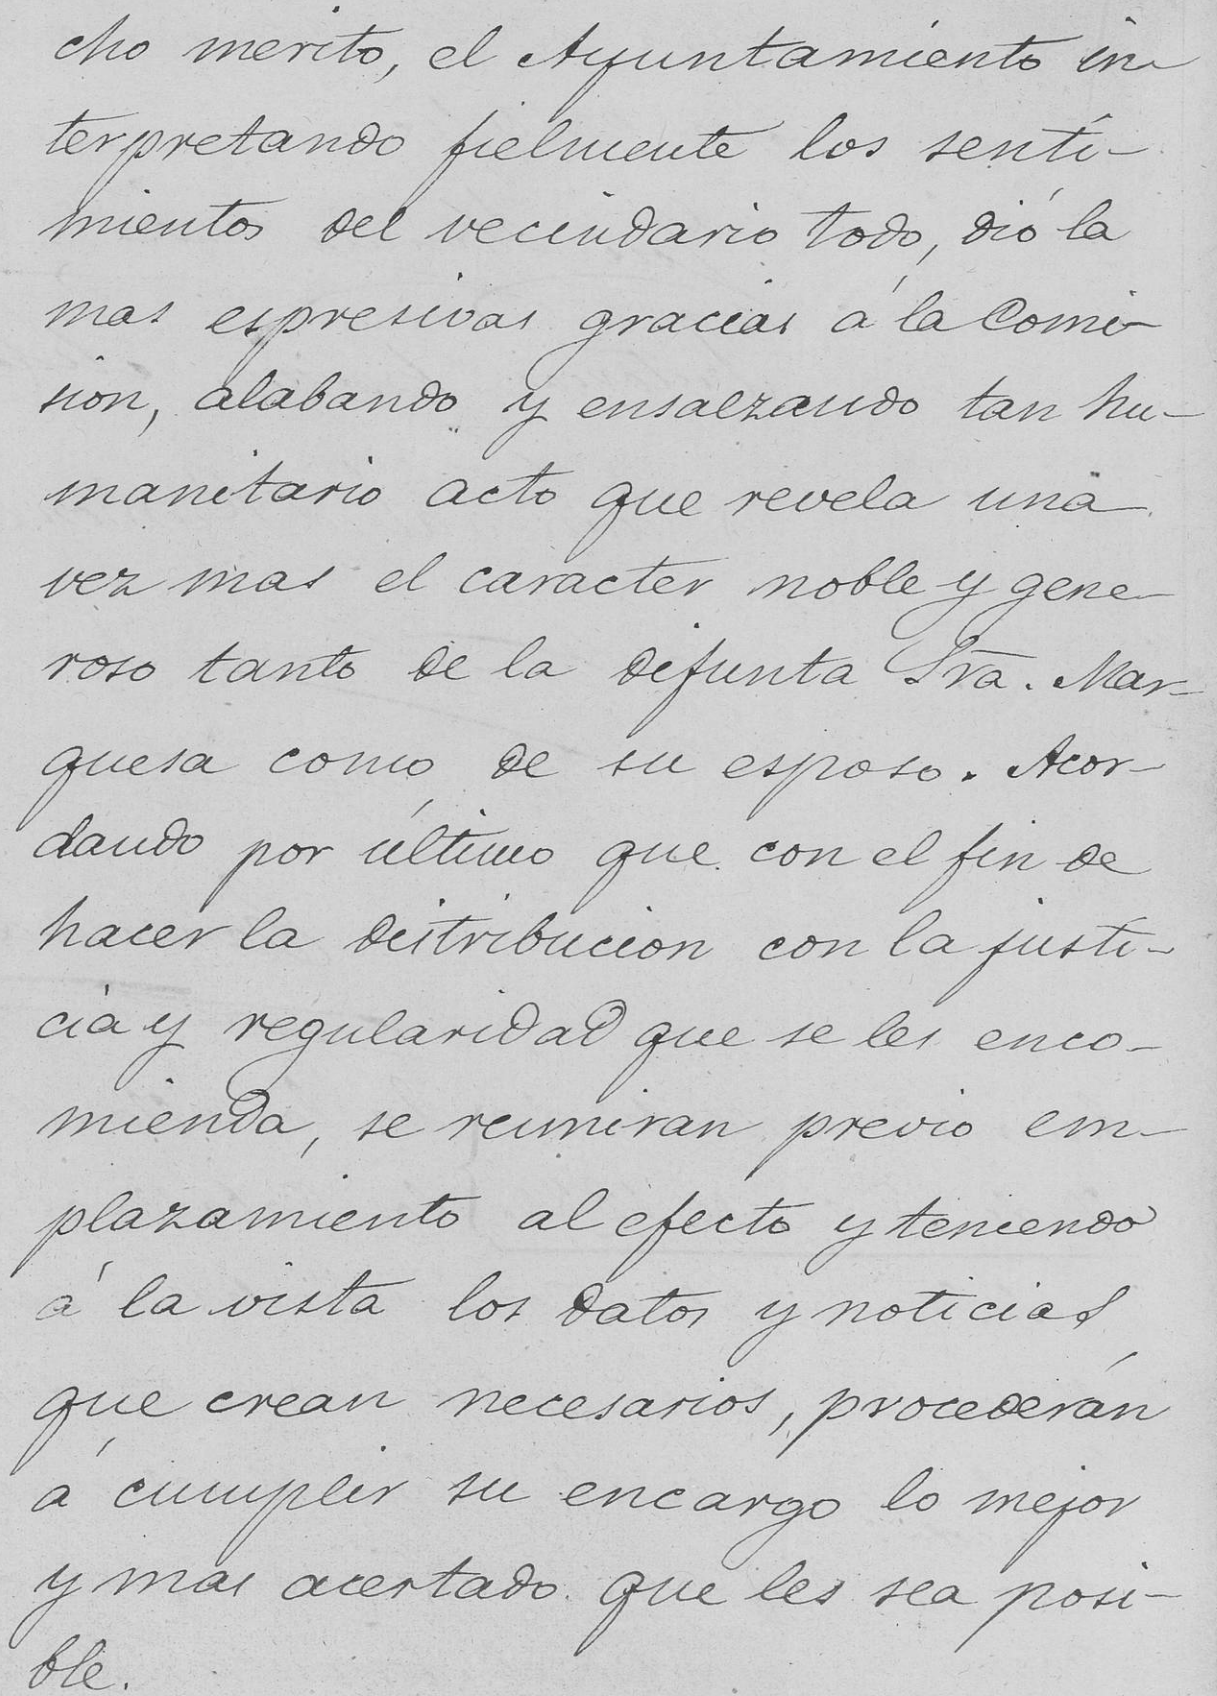 cho merito, el Ayuntamiento in
terpretando fielmente los senti-
mientos del vecindario todo, dió la
mas espresivas gracias á la Comi-
sion, alabando y ensalzando tan hu-
manitario acto que revela una
vez mas el caracter noble y gene-
roso tanto de la difunta Sra. Mar-
quesa como de su esposo. Acor-
dando por último que con el fin de
hacer la distribucion con la justi-
cia y regularidad que se les enco-
mienda, se reuniran previo em-
plazamiento al efecto y teniendo
á la vista los datos y noticias
que crean necesarios, procederán
á cumplir su encargo lo mejor
y mas acertado que les sea posi-
ble.